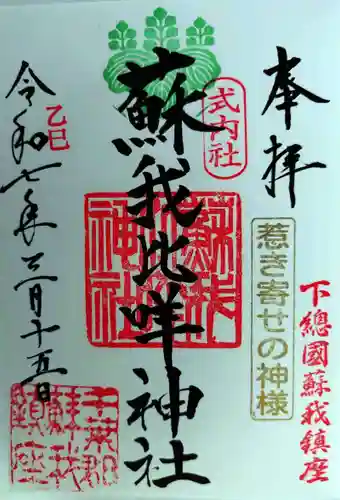 奉拝
下總國蘇我鎮座
惹き寄せの神様
式内社
蘇我比咩神社
蘇我比咩神社
乙巳
令和七年三月十五日
千葉郡
蘇我
鎮座